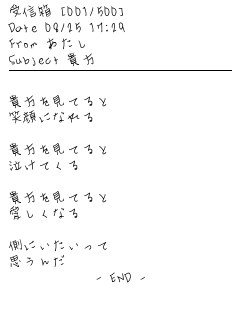 受信箱 [001/500]
Date 08/25 17:29
From あたし
Subject 貴方
貴方を見てると
笑顔になれる
貴方を見てると
泣けてくる
貴方を見てると
愛しくなる
側にいたいって
思うんだ
- END -